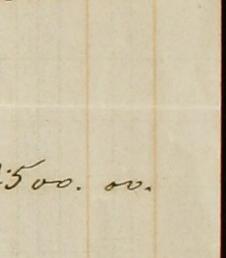 500. 00.